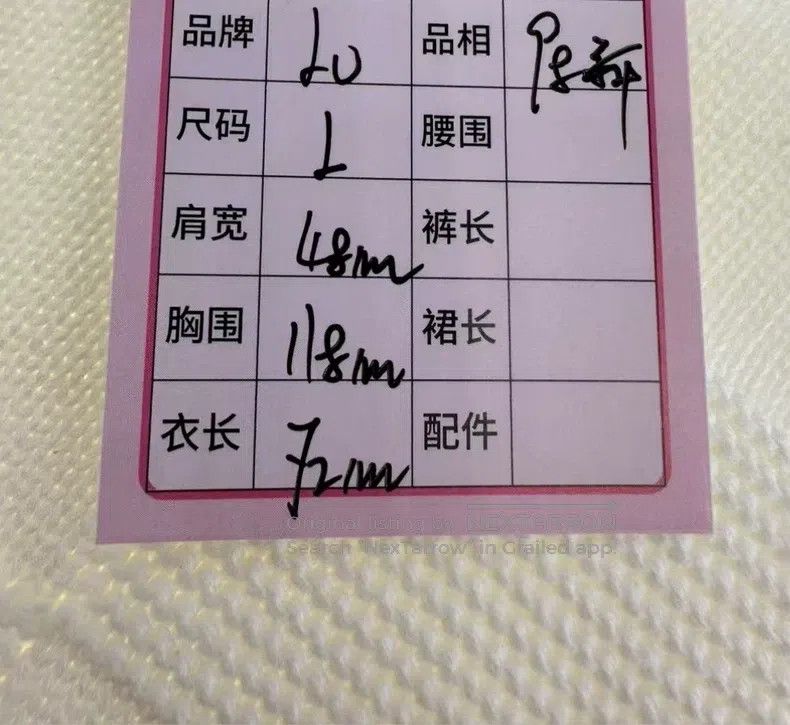 品牌 LV 品相 98新
尺码 L 腰围
肩宽 48cm 裤长
胸围 118cm 裙长
衣长 72cm 配件
Original listing by NEXTARROW
Search "NexTarrow" in Grailed app.